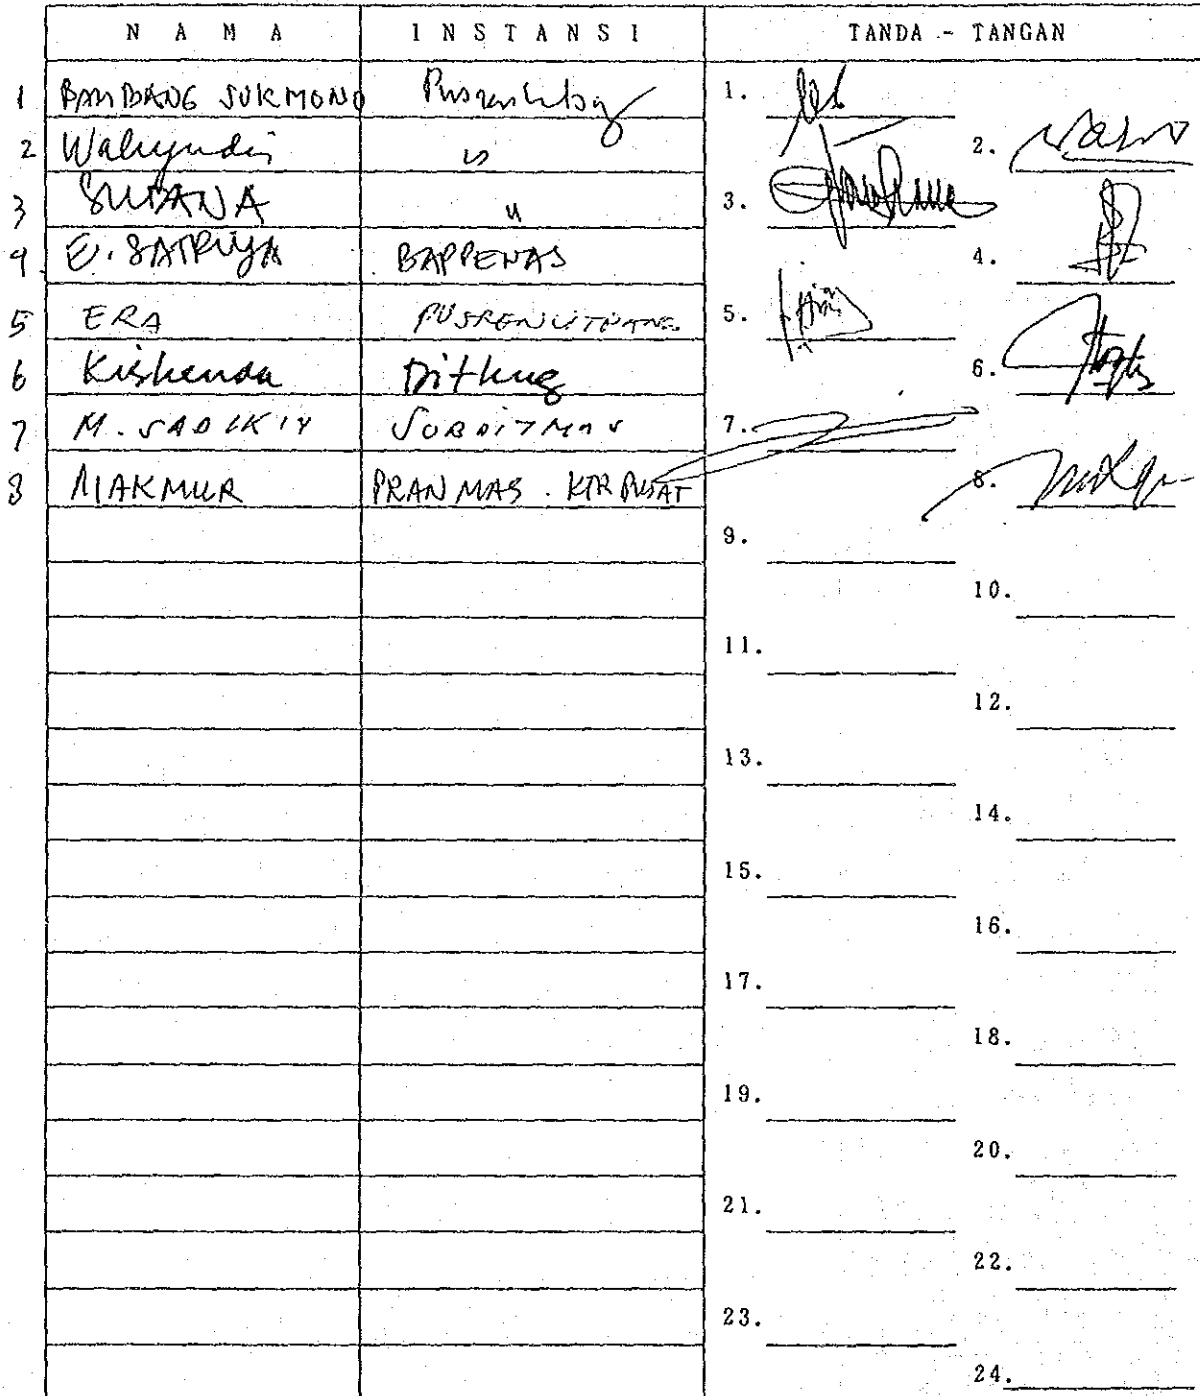 N A M A I N S T A N S I TANDA - TANGAN
1 BAMBANG SUKMONO 1.
2 Wahyudin " 2.
3 SUTANA " 3.
4 E. SATRIYA BAPPENAS 4.
5 ERA PUSRENLITBANG 5.
6 Kishenda 6.
7 M. SADIKIN SUBDITMAS 7.
8 MAKMUR PRANMAS. KTR PUSAT 8.
9.
10.
11.
12.
13.
14.
15.
16.
17.
18.
19.
20.
21.
22.
23.
24.